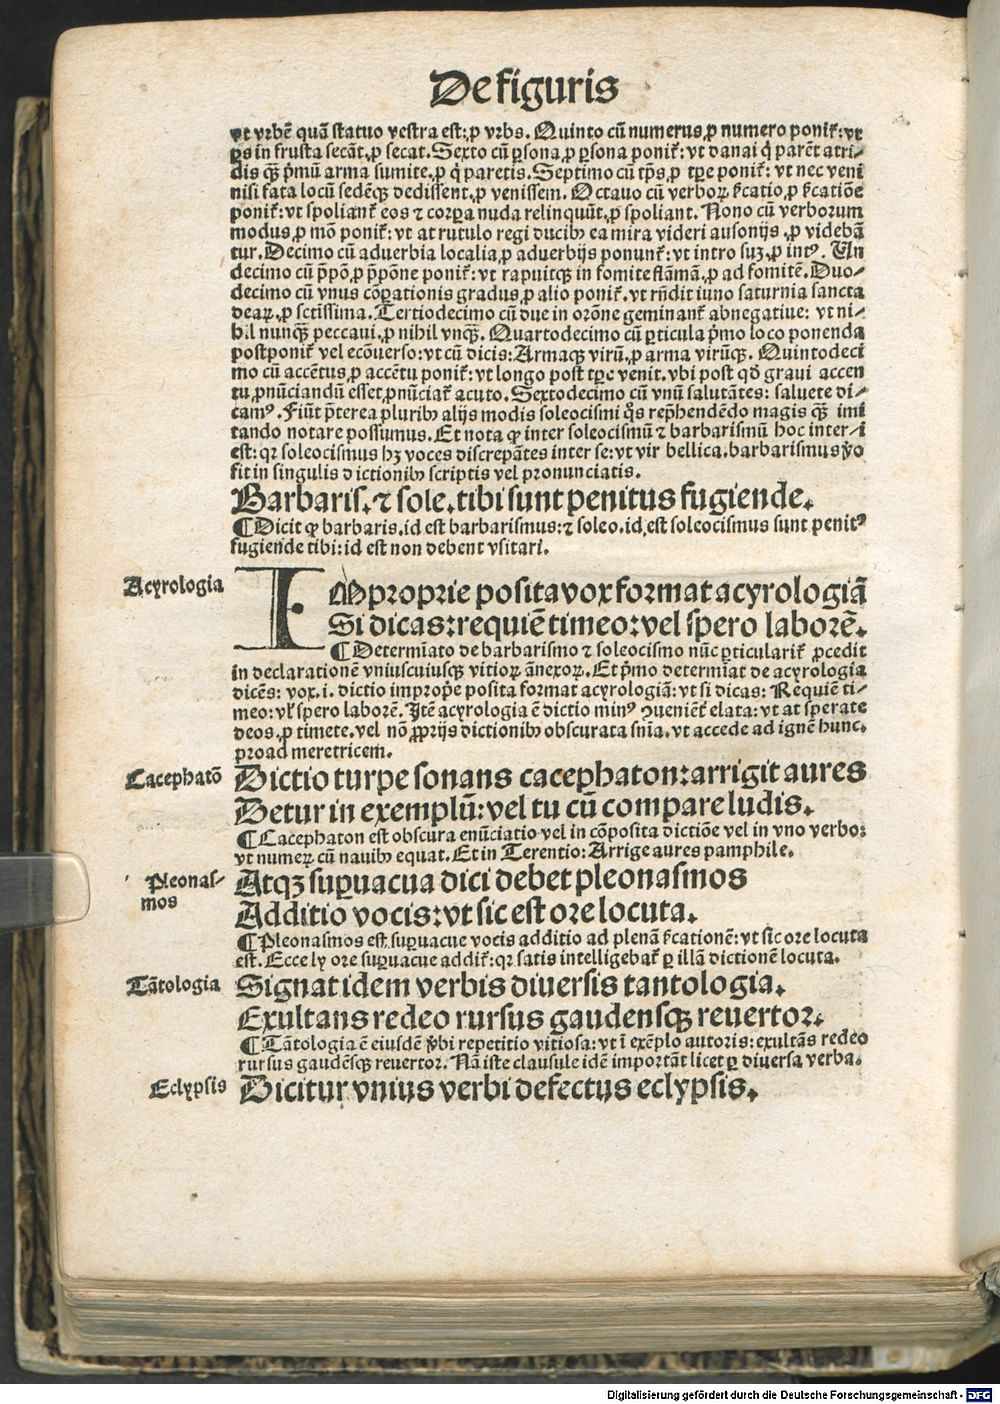 De figuris
vt vrbē quā statuo vestra est: ꝓ vrbs. Quinto cū numerus ꝓ numero poniť: vt
ꝑs in frusta secāt, ꝓ secat. Sexto cū ꝑsona ꝓ ꝑsona poniť: vt danai q̇ parēt atri⸗
dis qꝫ̄ pͥmū arma sumite, ꝓ q̇ paretis. Septimo cū tp̄s ꝓ tꝑe poniť: vt nec veni
nisi fata locū sedēqꝫ dedissent, ꝓ venissem. Octauo cū verboꝝ ſ̄catio ꝓ ſ̄catiōe
poniť: vt spolianť eos ⁊ corꝑa nuda relinquūt, ꝓ spoliant. Nono cū verborum
modus ꝓ mō poniť: vt at rutulo regi ducibꝰ ea mira videri ausonijs, ꝓ videbā
tur. Decimo cū aduerbia localia ꝓ aduerbijs ponunť: vt intro suꝫ, ꝓ intꝰ. Un
decimo cū p̄pō ꝓ p̄pōne poniť: vt rapuitqꝫ in fomite flāmā, ꝓ ad fomitē. Duo⸗
decimo cū vnus cōꝑationis gradus ꝓ alio poniť. vt rn̄dit iuno saturnia sancta
deaꝝ, ꝓ sctissima. Tertiodecimo cū due in orōne geminanť abnegatiue: vt ni⸗
hil nunqꝫ̄ peccaui, ꝓ nihil vnqꝫ̄. Quartodecimo cū ꝑticula pͥmo loco ponenda
postponiť vel ecōuerso: vt cū dicis: Armaqꝫ virū, ꝓ arma virūqꝫ. Quintodeci
mo cū accētus ꝓ accētu poniť: vt longo post tꝑe venit. vbi post qď graui accen
tu ꝓnūciandū esset, ꝓnūciať acuto. Sextodecimo cū vnū salutātes: saluete di⸗
camꝰ. Fiūt p̄terea pluribꝰ alijs modis soleocismi q̊s rep̄hendēdo magis qꝫ̄ imi
tando notare possumus. Et nota ꝙ inter soleocismū ⁊ barbarismū hoc inter⸗i
est: qꝛ soleocismus hꝫ voces discrepātes inter se: vt vir bellica. barbarismus v̊o
fit in singulis dictionibꝰ scriptis vel pronunciatis.
Barbaris. ⁊ sole. tibi sunt penitus fugiende.
¶ Dicit ꝙ barbaris. id est barbarismus: ⁊ soleo. id est soleocismus sunt penitꝰ
fugiende tibi: id est non debent vsitari.
Acyrologia
IMproprie posita vox format acyrologiā
Si dicas: requiē timeo: vel spero laborē.
¶ Determiato de barbarismo ⁊ soleocismo nūc ꝑticulariť ꝓcedit
in declarationē vniuscuiusqꝫ vitioꝝ ānexoꝝ. Et pͥmo determīat de acyrologia
dicēs: vox. i. dictio improꝑe posita format acyrologiā: vt si dicas: Requiē ti⸗
meo: vľ spero laborē. Itē acyrologia ē dictio minꝰ ꝯueniēť elata: vt at sperate
deos, ꝓ timete. vel nō ꝓprijs dictionibꝰ obscurata sn̄ia. vt accede ad ignē hunc.
pro ad meretricem.
Cacephatō
Dictio turpe sonans cacephaton: arrigit aures
Detur in exemplū: vel tu cū compare ludis.
¶ Cacephaton est obscura enūciatio vel in cōposita dictiōe vel in vno verbo:
vt numeꝝ cū nauibꝰ equat. Et in Terentio: Arrige aures pamphile.
Pleonas⸗
mos
Atqꝫ suꝑuacua dici debet pleonasmos
Additio vocis: vt sic est ore locuta.
¶ Pleonasmos est suꝑuacue vocis additio ad plenā ſ̄cationē: vt sic ore locuta
est. Ecce ly ore suꝑuacue addiť: qꝛ satis intelligebať ꝑ illā dictionē locuta.
Tātologia
Signat idem verbis diuersis tantologia.
Exultans redeo rursus gaudensqꝫ reuertor.
¶ Tātologia ē eiusdē v̊bi repetitio vitiosa: vt ī exēplo autoris: exultās redeo
rursus gaudēsqꝫ reuertor. Nā iste clausule idē importāt licet ꝑ diuersa verba.
Eclypsis
Dicitur vnius verbi defectus eclypsis.
Digitalisierung gefördert durch die Deutsche Forschungsgemeinschaft - DFG